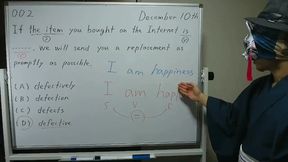 002 December 10th
If the item you bought on the Internet is
(S) (V)
-----, we will send you a replacement as
(C)
promptly as possible.
I am happiness
(A) defectively
I am hap
(B) defection
S V C
(C) defects
=
(D) defective